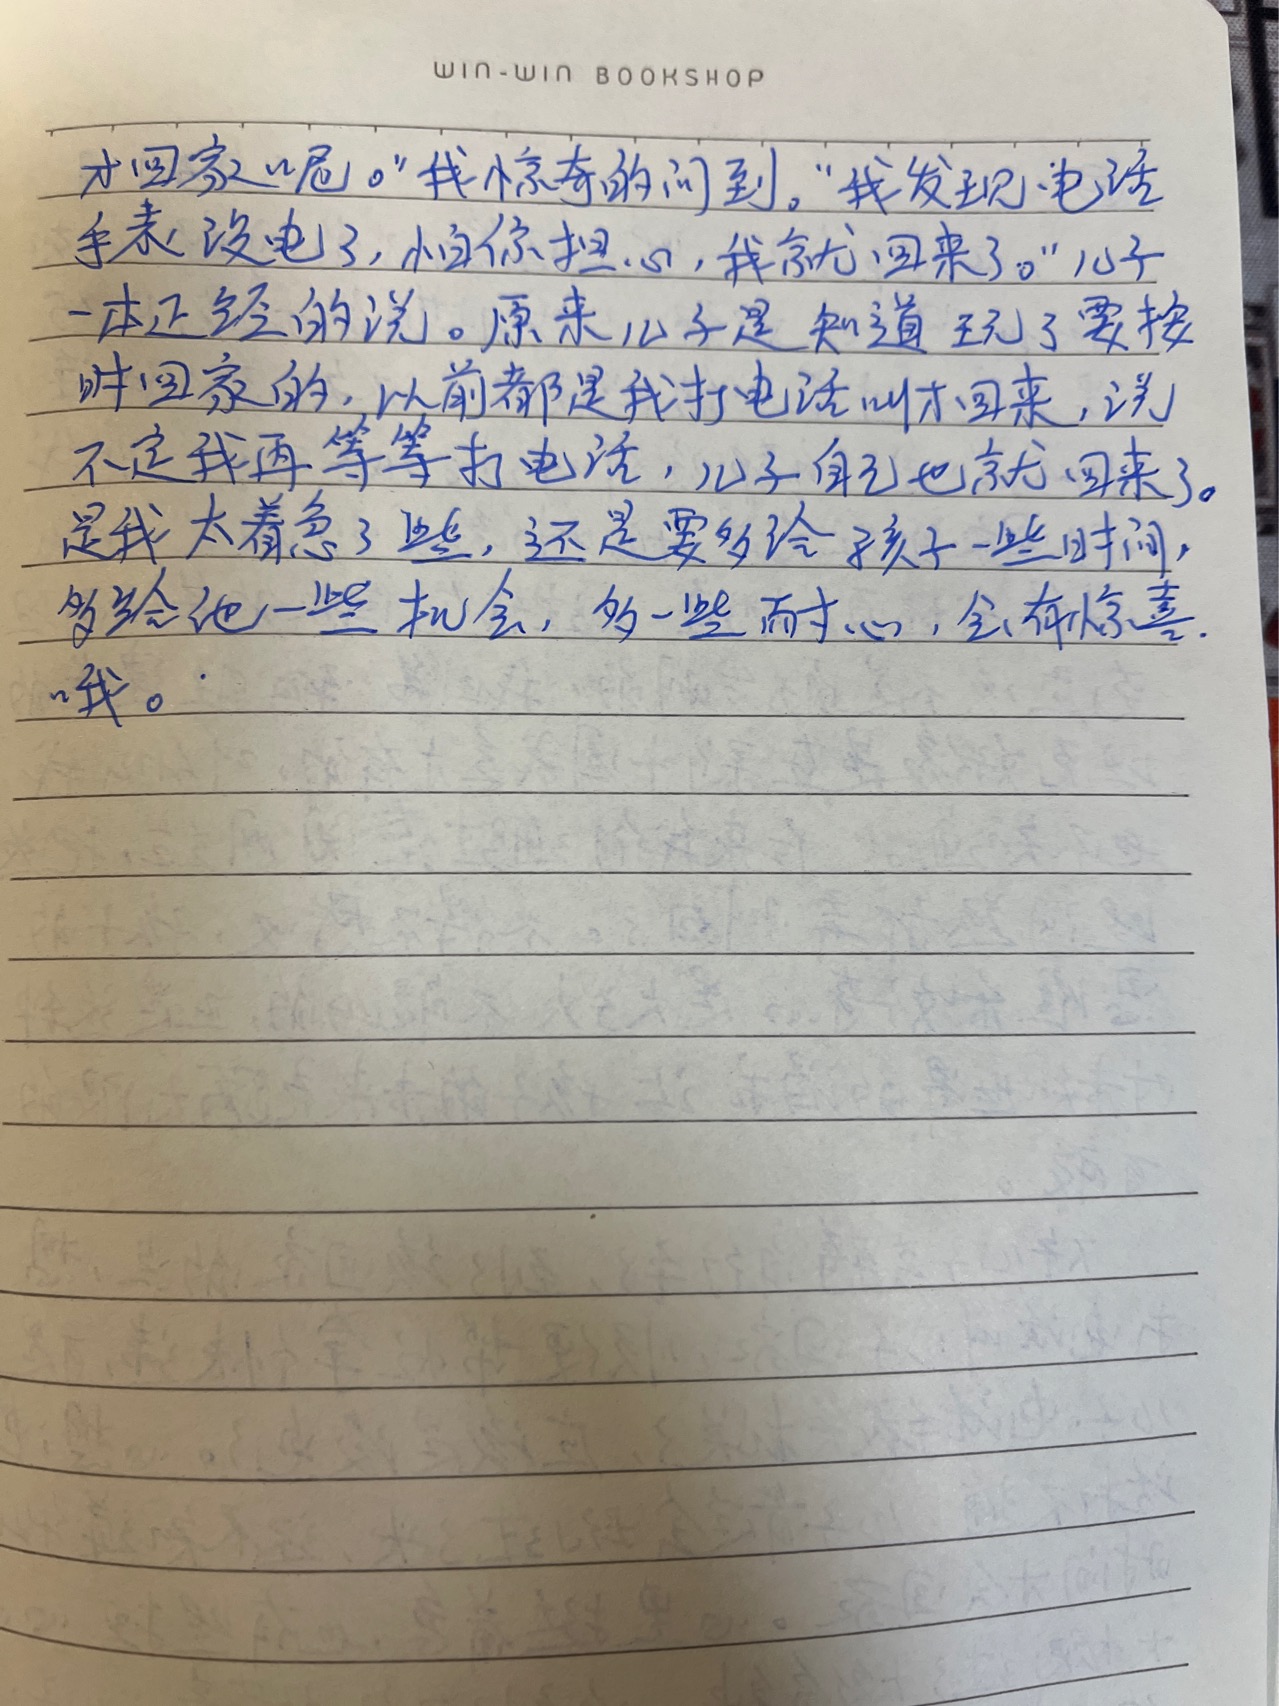 WIN-WIN BOOKSHOP
才回家呢。"我惊奇的问到。"我发现电话
手表没电了,怕你担心,我就回来了。"儿子
一本正经的说。原来儿子是知道玩了要按
时回家的,以前都是我打电话叫才回来,说
不定我再等等打电话,儿子自己也就回来了。
是我太着急了些,还是要多给孩子一些时间,
多给他一些机会,多一些耐心,会有惊喜
哦。